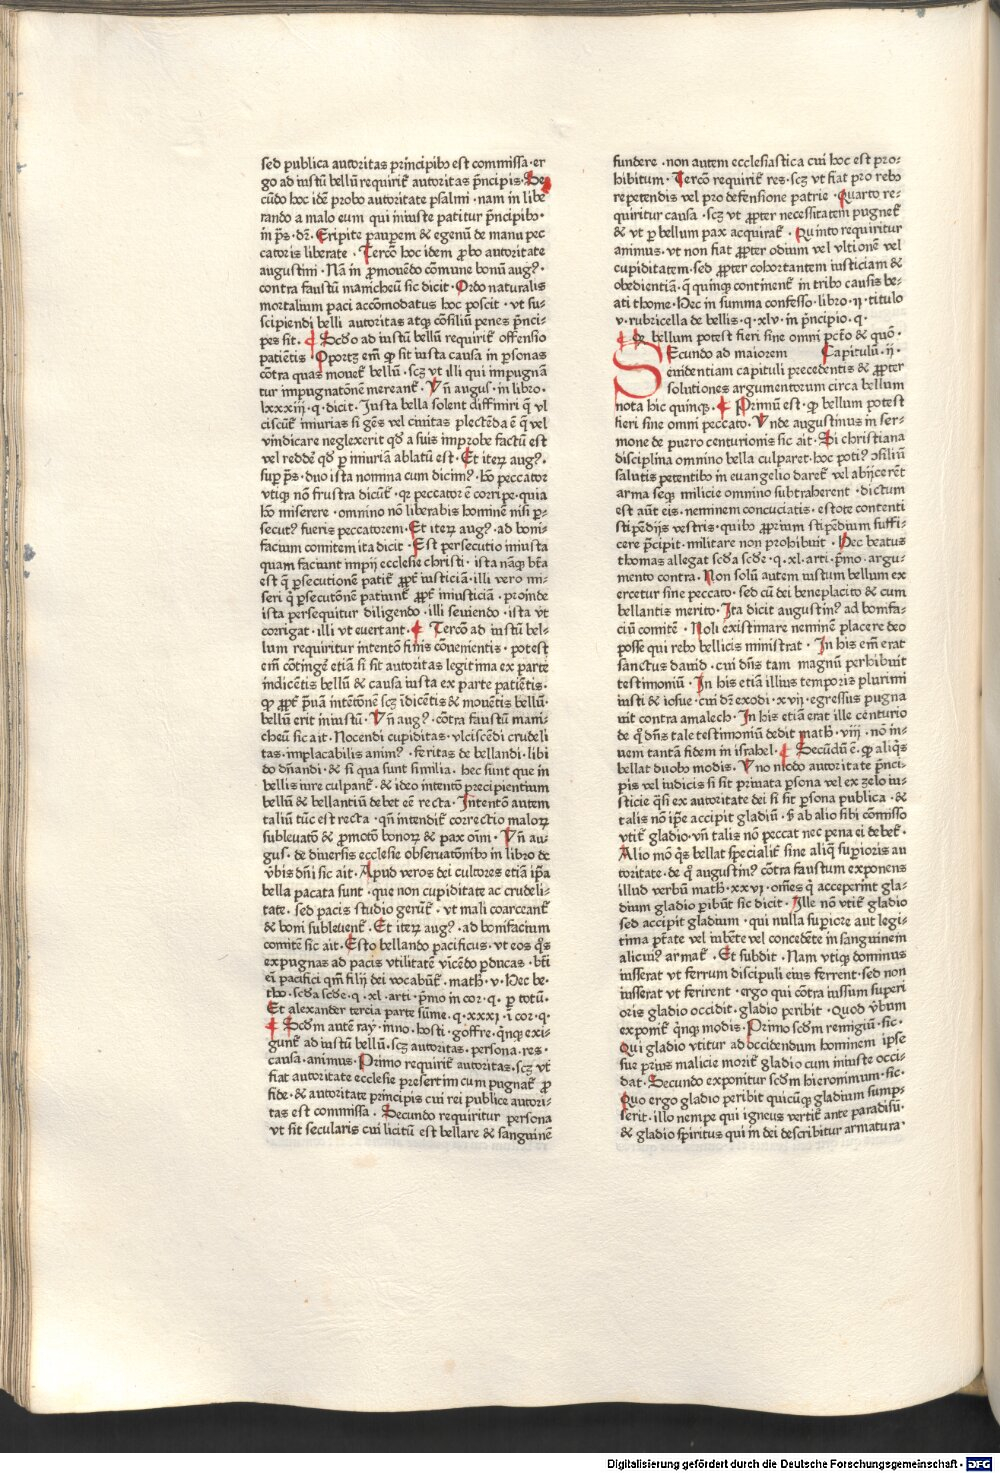 sed publica autoritas principibꝰ est commissa · er
go ad iustū bellū requirit᷑ autoritas p̄ncipis · Se
cūdo hoc idē probo autoritate psalmi · nam in libe
rando a malo eum qui iniuste patitur p̄ncipibꝰ ·
in pˢ̄ · dr̄ · Eripite pauꝑem & egenū de manu pec
catoris liberate · Tercō hoc idem ꝓbo autoritate
augustini · Nā in ꝓmouēdo cōmune bonū augꝰ ·
contra faustū manicheū sic dicit · Ordo naturalis
mortalium paci accōmodatus hoc poscit · vt su-
scipiendi belli autoritas atqꝫ cōsiliū penes p̄nci-
pes sit · ¶ Scd̄o ad iustū bellū requirit᷑ offensio
patiētis Oportꝫ em̄ ꝙ sit iusta causa in ꝑsonas
cōtra quas mouet᷑ bellū · scꝫ vt illi qui impugnā
tur impugnatōnē mereant᷑ · Vn̄ augus · in libro ·
lxxxiii · q · dicit · Iusta bella solent diffiniri q̄ vl
ciscūt᷑ iniurias si gēs vel ciuitas plectēda ē q̄ vel
vindicare neglexerit qd̄ a suis improbe factū est
vel redde᷑ qd̄ ꝑ iniuriā ablatū est · Et iteꝝ augꝰ ·
suꝑ pˢ̄ · duo ista nomina cum dicimꝰ · hō peccator
vtiqꝫ nō frustra dicūt᷑ · qꝛ peccator ē corripe · quia
hō miserere · omnino nō liberabis hominē nisi ꝑ-
secutꝰ fueris peccatorem · Et iteꝝ augꝰ · ad boni-
facium comitem ita dicit · Est persecutio iniusta
quam faciunt impij ecclesie christi · ista nāqꝫ bt̄a
est q̄ ꝑsecutionē patit᷑ ꝓpt̄ iusticiā · illi vero mi-
seri q̄ ꝑsecutōnē patiunt᷑ ꝓpt̄ iniusticiā · proinde
ista persequitur diligendo · illi seuiendo · ista vt
corrigat · illi vt euertant · ¶ Tercō ad iustū bel-
lum requiritur intentō finis cōuenientis · potest
em̄ cōtinge᷑ etiā si sit autoritas legitima ex parte
indicētis bellū & causa iusta ex parte patiētis ·
ꝙ ꝓpt̄ prauā intētōnē scꝫ īdicētis & mouētis bellū ·
bellū erit iniustū · Vn̄ augꝰ · cōtra faustū mani-
cheū sic ait · Nocendi cupiditas · vlciscēdi crudeli
tas · implacabilis animꝰ · feritas de bellandi · libi
do dn̄andi · & si qua sunt similia · hec sunt que in
bellis iure culpant᷑ · & ideo intentō precipientium
bellū & bellantiū debet ee᷑ recta · Intentō autem
taliū tūc est recta · qn̄ intendit᷑ correctio maloꝝ
subleuatō & ꝓmotō bonoꝝ & pax oīm · Vn̄ au-
gus · de diuersis ecclesie obseruatōnibꝰ in libro de
v̄bis dn̄i sic ait · Apud veros dei cultores etiā ip̄a
bella pacata sunt · que non cupiditate ac crudeli-
tate · sed pacis studio gerūt᷑ · vt mali coarceant᷑
& boni subleuent᷑ · Et iteꝝ augꝰ · ad bonifacium
comitē sic ait · Esto bellando pacificus · vt eos qˢ̄
expugnas ad pacis vtilitatē vīcēdo ꝑducas · bt̄i
ei᷑ pacifici qm̄ filij dei vocabūt᷑ · math · v · Hec be ·
tho · scd̄a scd̄e · q · xl · arti · pͥmo in cor · q · ꝑ totū ·
Et alexander tercia parte sūme · q · xxxi · ī cor · q ·
¶ Scd̄m autē ray · inno · hosti · goffre · qͥnqꝫ exi-
gunt᷑ ad iustū bellū · scꝫ autoritas · persona · res ·
causa · animus · Primo requirit᷑ autoritas · scꝫ vt
fiat autoritate ecclesie presertim cum pugnat᷑ ꝓ
fide · & autoritate principis cui rei publice autori-
tas est commissa · Secundo requiritur persona
vt sit secularis cui licitū est bellare & sanguinē
fundere · non autem ecclesiastica cui hoc est pro-
hibitum · Tercō requirit᷑ res · scꝫ vt fiat pro rebꝰ
repetendis vel pro defensione patrie · Quarto re-
quiritur causa · scꝫ vt ꝓpter necessitatem pugnet᷑
& vt ꝑ bellum pax acquirat᷑ · Quinto requiritur
animus · vt non fiat ꝓpter odium vel vltionē vel
cupiditatem · sed ꝓpter cohortantem iusticiam &
obedientiā · q̄ quinqꝫ continent᷑ in tribꝰ causis be-
ati thome · Hec in summa confesso · libro · ij · titulo
v · rubricella de bellis · q · xlv · in p̄ncipio · q ·
¶ Qꝙ bellum potest fieri sine omni pctō & quō ·
SEcundo ad maiorem Capitulū · ii ·
euidentiam capituli precedentis & ꝓpter
solutiones argumentorum circa bellum
nota hic quinqꝫ · ¶ Primū est · ꝙ bellum potest
fieri sine omni peccato · Vnde augustinus in ser-
mone de puero centurionis sic ait · Si christiana
disciplina omnino bella culparet · hoc potiꝰ ꝯsiliū
salutis petentibꝰ in euangelio daret᷑ vel abijcerēt
arma seqꝫ milicie omnino subtraherent · dictum
est aūt eis · neminem concuciatis · estote contenti
stipendijs vestris · quibꝰ ꝓprium stipendium suffi-
cere p̄cipit · militare non prohibuit · Hec beatus
thomas allegat scd̄a scd̄e · q · xl · arti · pͥmo · argu-
mento contra · Non solū autem iustum bellum ex
ercetur sine peccato · sed cū dei beneplacito & cum
bellantis merito · Ita dicit augustinꝰ ad bonifa-
ciū comitē · Noli existimare neminē placere deo
posse qui rebꝰ bellicis ministrat · In his em̄ erat
sanctus dauid · cui dn̄s tam magnū perhibuit
testimoniū · In his etiā illius temporis plurimi
iusti & iosue · cui dr̄ exodi · xvii · egressus pugna
uit contra amalech · In his etiā erat ille centurio
de q̄ dn̄s tale testimoniū dedit math · viii · nō in-
ueni tantā fidem in israhel · ¶ Secūdū ē · ꝙ aliqͥs
bellat duobꝰ modis · Vno modo autoritate p̄nci-
pis vel iudicis si sit priuata ꝑsona vel ex zelo iu-
sticie qͣsi ex autoritate dei si sit ꝑsona publica · &
talis nō ip̄e accipit gladiū · sꝫ ab alio sibi cōmisso
vtit᷑ gladio · vn̄ talis nō peccat nec pena ei debet᷑ ·
Alio mō qͥs bellat specialit᷑ sine aliqͣ suꝑioris au
toritate · de q̄ augustinꝰ cōtra faustum exponens
illud verbū math · xxvi · om̄es q̄ acceperint gla-
dium gladio ꝑibūt sic dicit · Ille nō vtit᷑ gladio
sed accipit gladium · qui nulla suꝑiore aut legi-
tima ptāte vel iubēte vel concedēte in sanguinem
alicuiꝰ armat᷑ · Et subdit · Nam vtiqꝫ dominus
iusserat vt ferrum discipuli eius ferrent · sed non
iusserat vt ferirent · ergo qui cōtra iussum superi
oris gladio occidit · gladio peribit · Quod v̄bum
exponit᷑ qͥnqꝫ modis · Primo scd̄m remigiū · sic ·
Qui gladio vtitur ad occidendum hominem ipse
sue prius malicie morit᷑ gladio cum iniuste occi-
dat · Secundo exponitur scd̄m hieronimum · sic ·
Quo ergo gladio peribit quicūqꝫ gladium sump-
serit · illo nempe qui igneus vertit᷑ ante paradisū ·
& gladio spiritus qui in dei describitur armatura ·
Digitalisierung gefördert durch die Deutsche Forschungsgemeinschaft - DFG